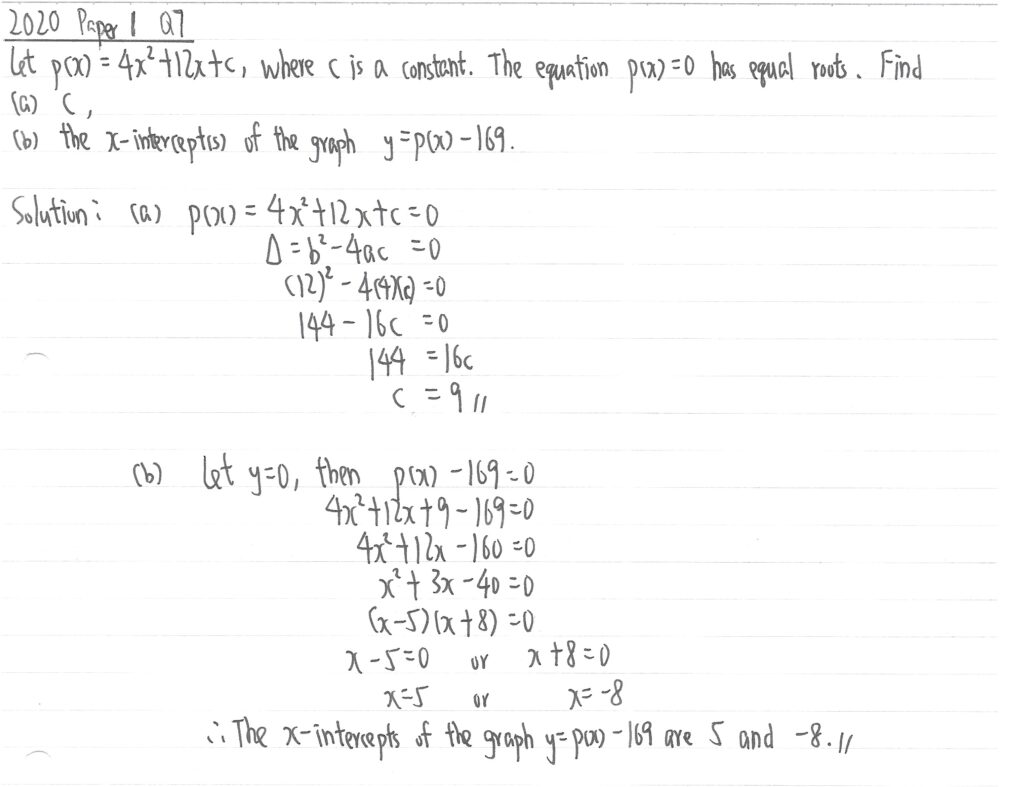 2020 Paper 1 Q7
Let p(x) = 4x²+12x+c, where c is a constant. The equation p(x)=0 has equal roots. Find
(a) c,
(b) the x-intercept(s) of the graph y=p(x)-169.
Solution: (a) p(x) = 4x²+12x+c=0
Δ = b²-4ac =0
(12)² - 4(4)(c) =0
144 - 16c =0
144 = 16c
c = 9 //
(b) Let y=0, then p(x) -169=0
4x²+12x+9-169=0
4x²+12x-160=0
x²+3x-40=0
(x-5)(x+8)=0
x-5=0 or x+8=0
x=5 or x=-8
∴ The x-intercepts of the graph y=p(x)-169 are 5 and -8. //